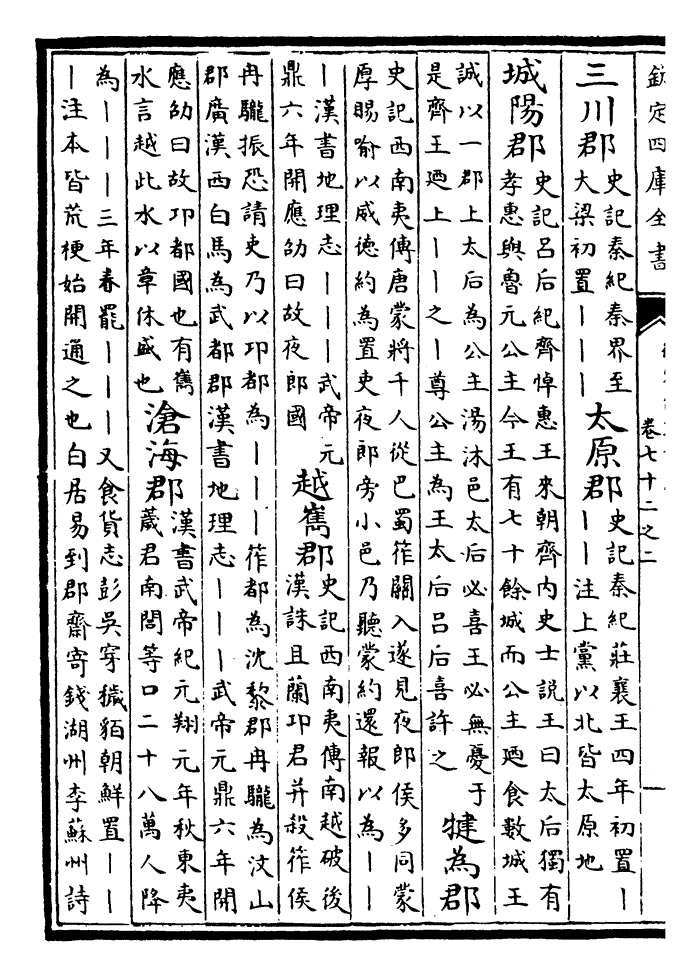 欽定四庫全書
卷七十二之二
一
三川郡
史記秦紀秦界至
大梁初置｜｜｜
太原郡
史記秦紀莊襄王四年初置｜
｜｜注上黨以北皆太原地
城陽郡
史記呂后紀齊悼惠王來朝齊内史士説王曰太后獨有
孝惠與魯元公主今王有七十餘城而公主廼食數城王
誠以一郡上太后為公主湯沐邑太后必喜王必無憂于
是齊王廼上｜｜之｜尊公主為王太后呂后喜許之
犍為郡
史記西南夷傳唐蒙將千人從巴蜀筰關入遂見夜郎侯多同蒙
厚賜喻以威德約為置吏夜郎旁小邑乃聽蒙約還報以為｜｜
｜漢書地理志｜｜｜武帝元
鼎六年開應劭曰故夜郎國
越嶲郡
史記西南夷傳南越破後
漢誅且蘭邛君并殺筰侯
冉駹振恐請吏乃以邛都為｜｜｜筰都為沈黎郡冉駹為汶山
郡廣漢西白馬為武都郡漢書地理志｜｜｜武帝元鼎六年開
應劭曰故邛都國也有嶲
水言越此水以章休盛也
滄海郡
漢書武帝紀元翔元年秋東夷
薉君南閭等口二十八萬人降
為｜｜｜三年春罷｜｜｜又食貨志彭吳穿穢貊朝鮮置｜｜
｜注本皆荒梗始開通之也白居易到郡齋寄錢湖州李蘇州詩